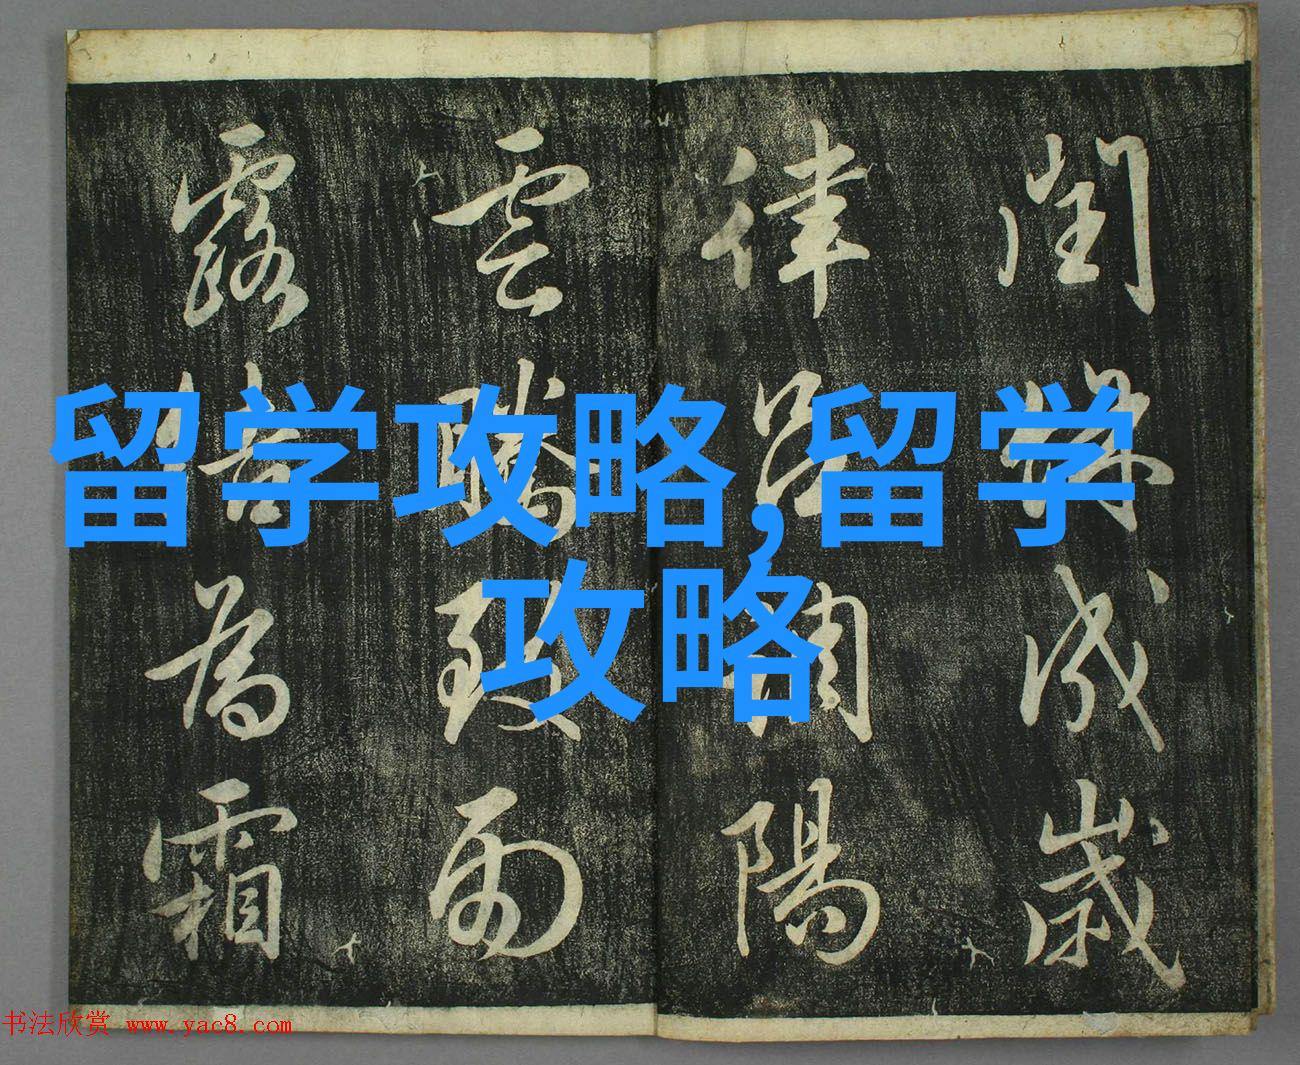 閏餘成歲
律呂調陽
雲騰致雨
露結為霜
留学攻略,留学
攻略
书法欣赏 www.yac8.com